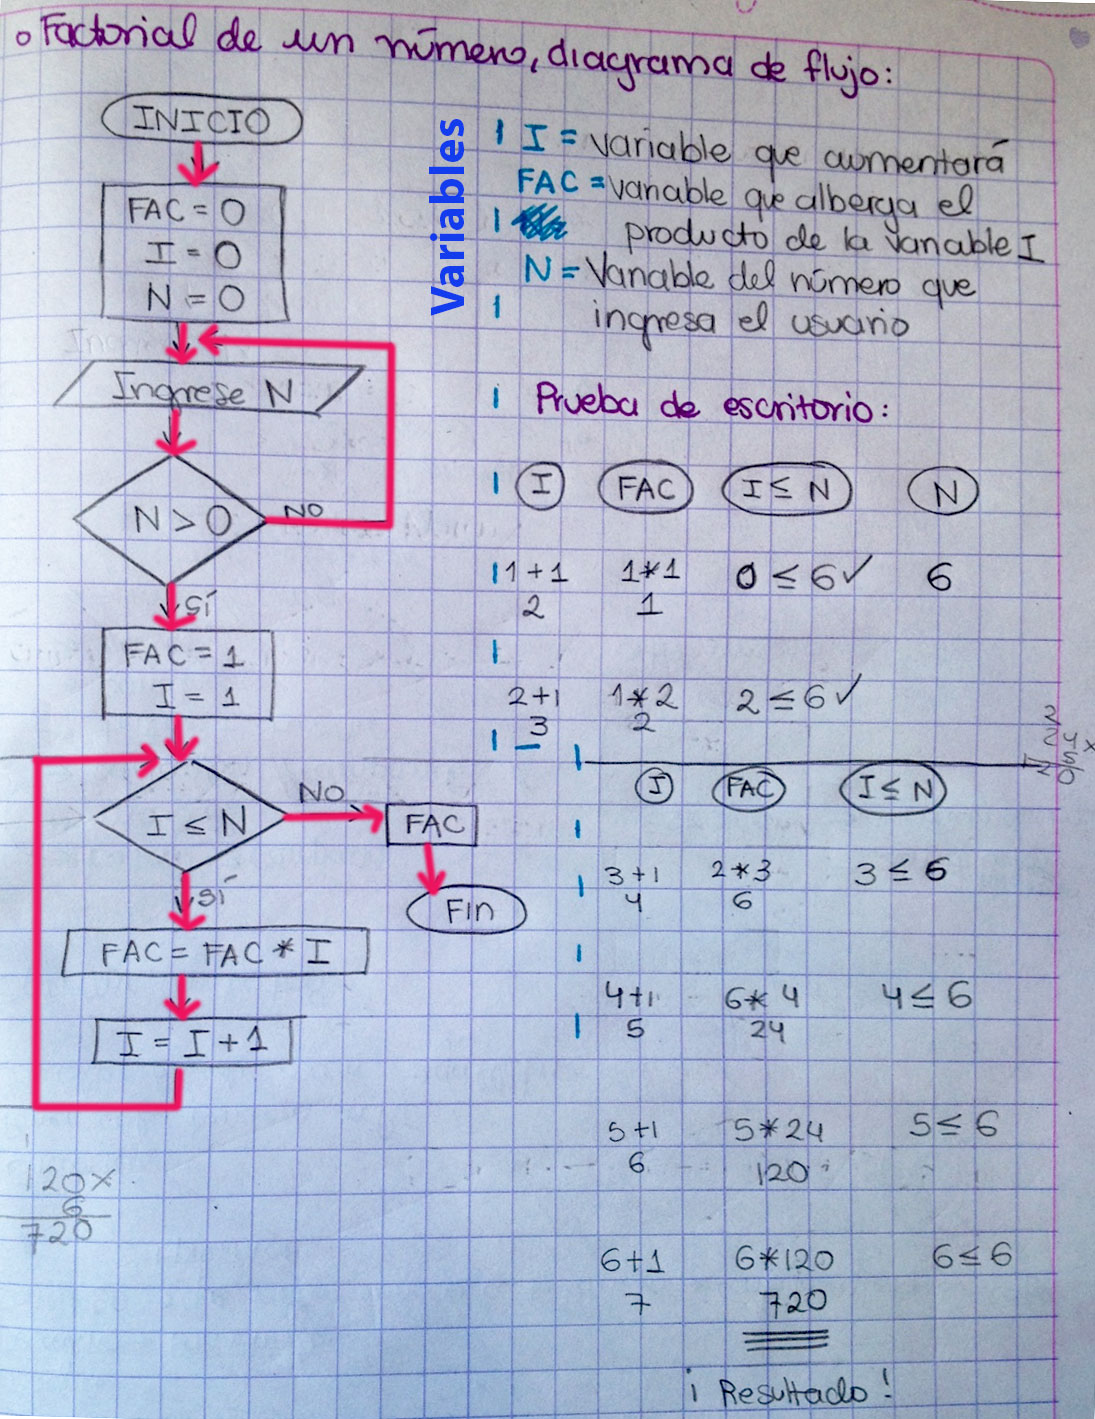 Factorial de un número, diagrama de flujo:
INICIO
FAC = 0
I = 0
N = 0
Ingrese N
N > 0
NO
SÍ
FAC = 1
I = 1
I ≤ N
NO
FAC
Fin
SÍ
FAC = FAC * I
I = I + 1
120 x
6
720
Variables
I = variable que aumentará
FAC = variable que alberga el
producto de la variable I
N = Variable del número que
ingresa el usuario
Prueba de escritorio:
I FAC I ≤ N N
1+1 1*1 0 ≤ 6 ✓ 6
2 1
2+1 1*2 2 ≤ 6 ✓
3 2
I FAC I ≤ N
3+1 2*3 3 ≤ 6
4 6
4+1 6*4 4 ≤ 6
5 24
5+1 5*24 5 ≤ 6
6 120
6+1 6*120 6 ≤ 6
7 720
¡Resultado!